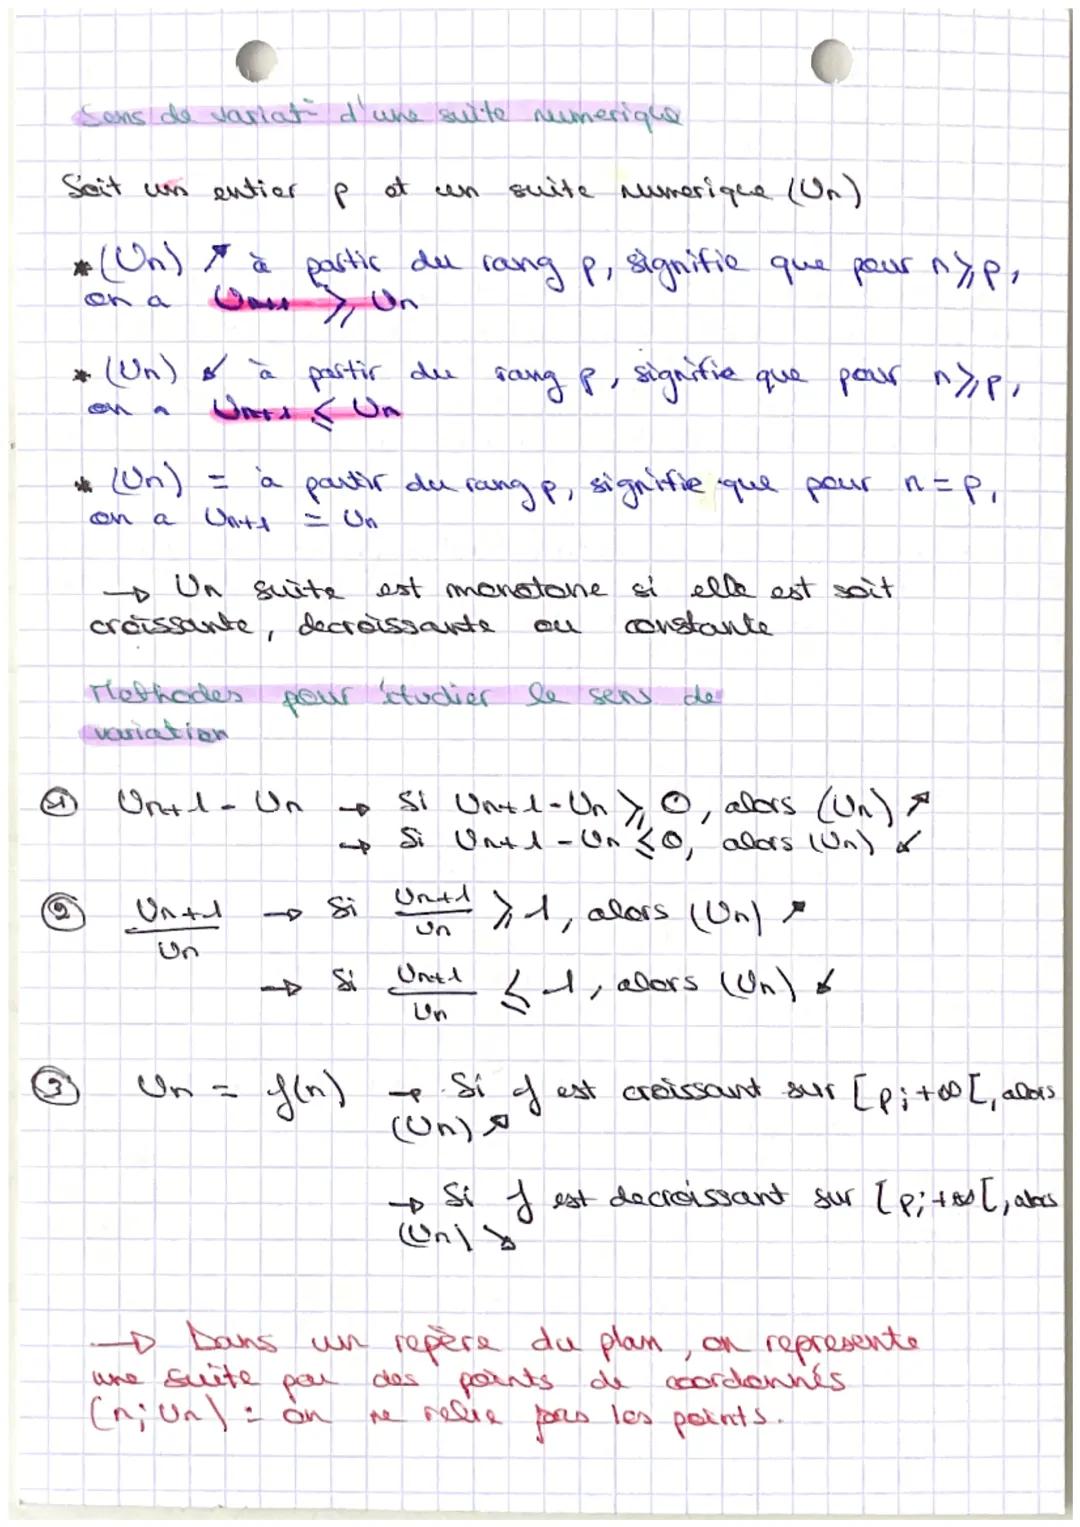 Sens de variat° d'une suite numerique
Soit un entier p et un suite numerique (Un)
* (Un) ↗ à partir du rang p, signifie que pour n ⩾ p,
on a Un+1 ⩾ Un
* (Un) ↙ à partir du rang p, signifie que pour n ⩾ p,
on a Un+1 ⩽ Un
* (Un) = à partir du rang p, signifie que pour n = p,
on a Un+1 = Un
→ Un suite est monotone si elle est soit
croissante, decroissante ou constante
Methodes pour étudier le sens de
variation
① Un+1 - Un → Si Un+1 - Un ⩾ 0, alors (Un) ↗
→ Si Un+1 - Un ⩽ 0, alors (Un) ↙
② Un+1/Un → Si Un+1/Un ⩾ 1, alors (Un) ↗
→ Si Un+1/Un ⩽ 1, alors (Un) ↙
③ Un = f(n) → Si f est croissant sur [p;+∞[, alors
(Un) ↗
→ Si f est decroissant sur [p;+∞[, alors
(Un) ↘
→ Dans un repère du plan, on represente
une suite par des points de coordonnés
(n; Un) = on ne relie pas les points.